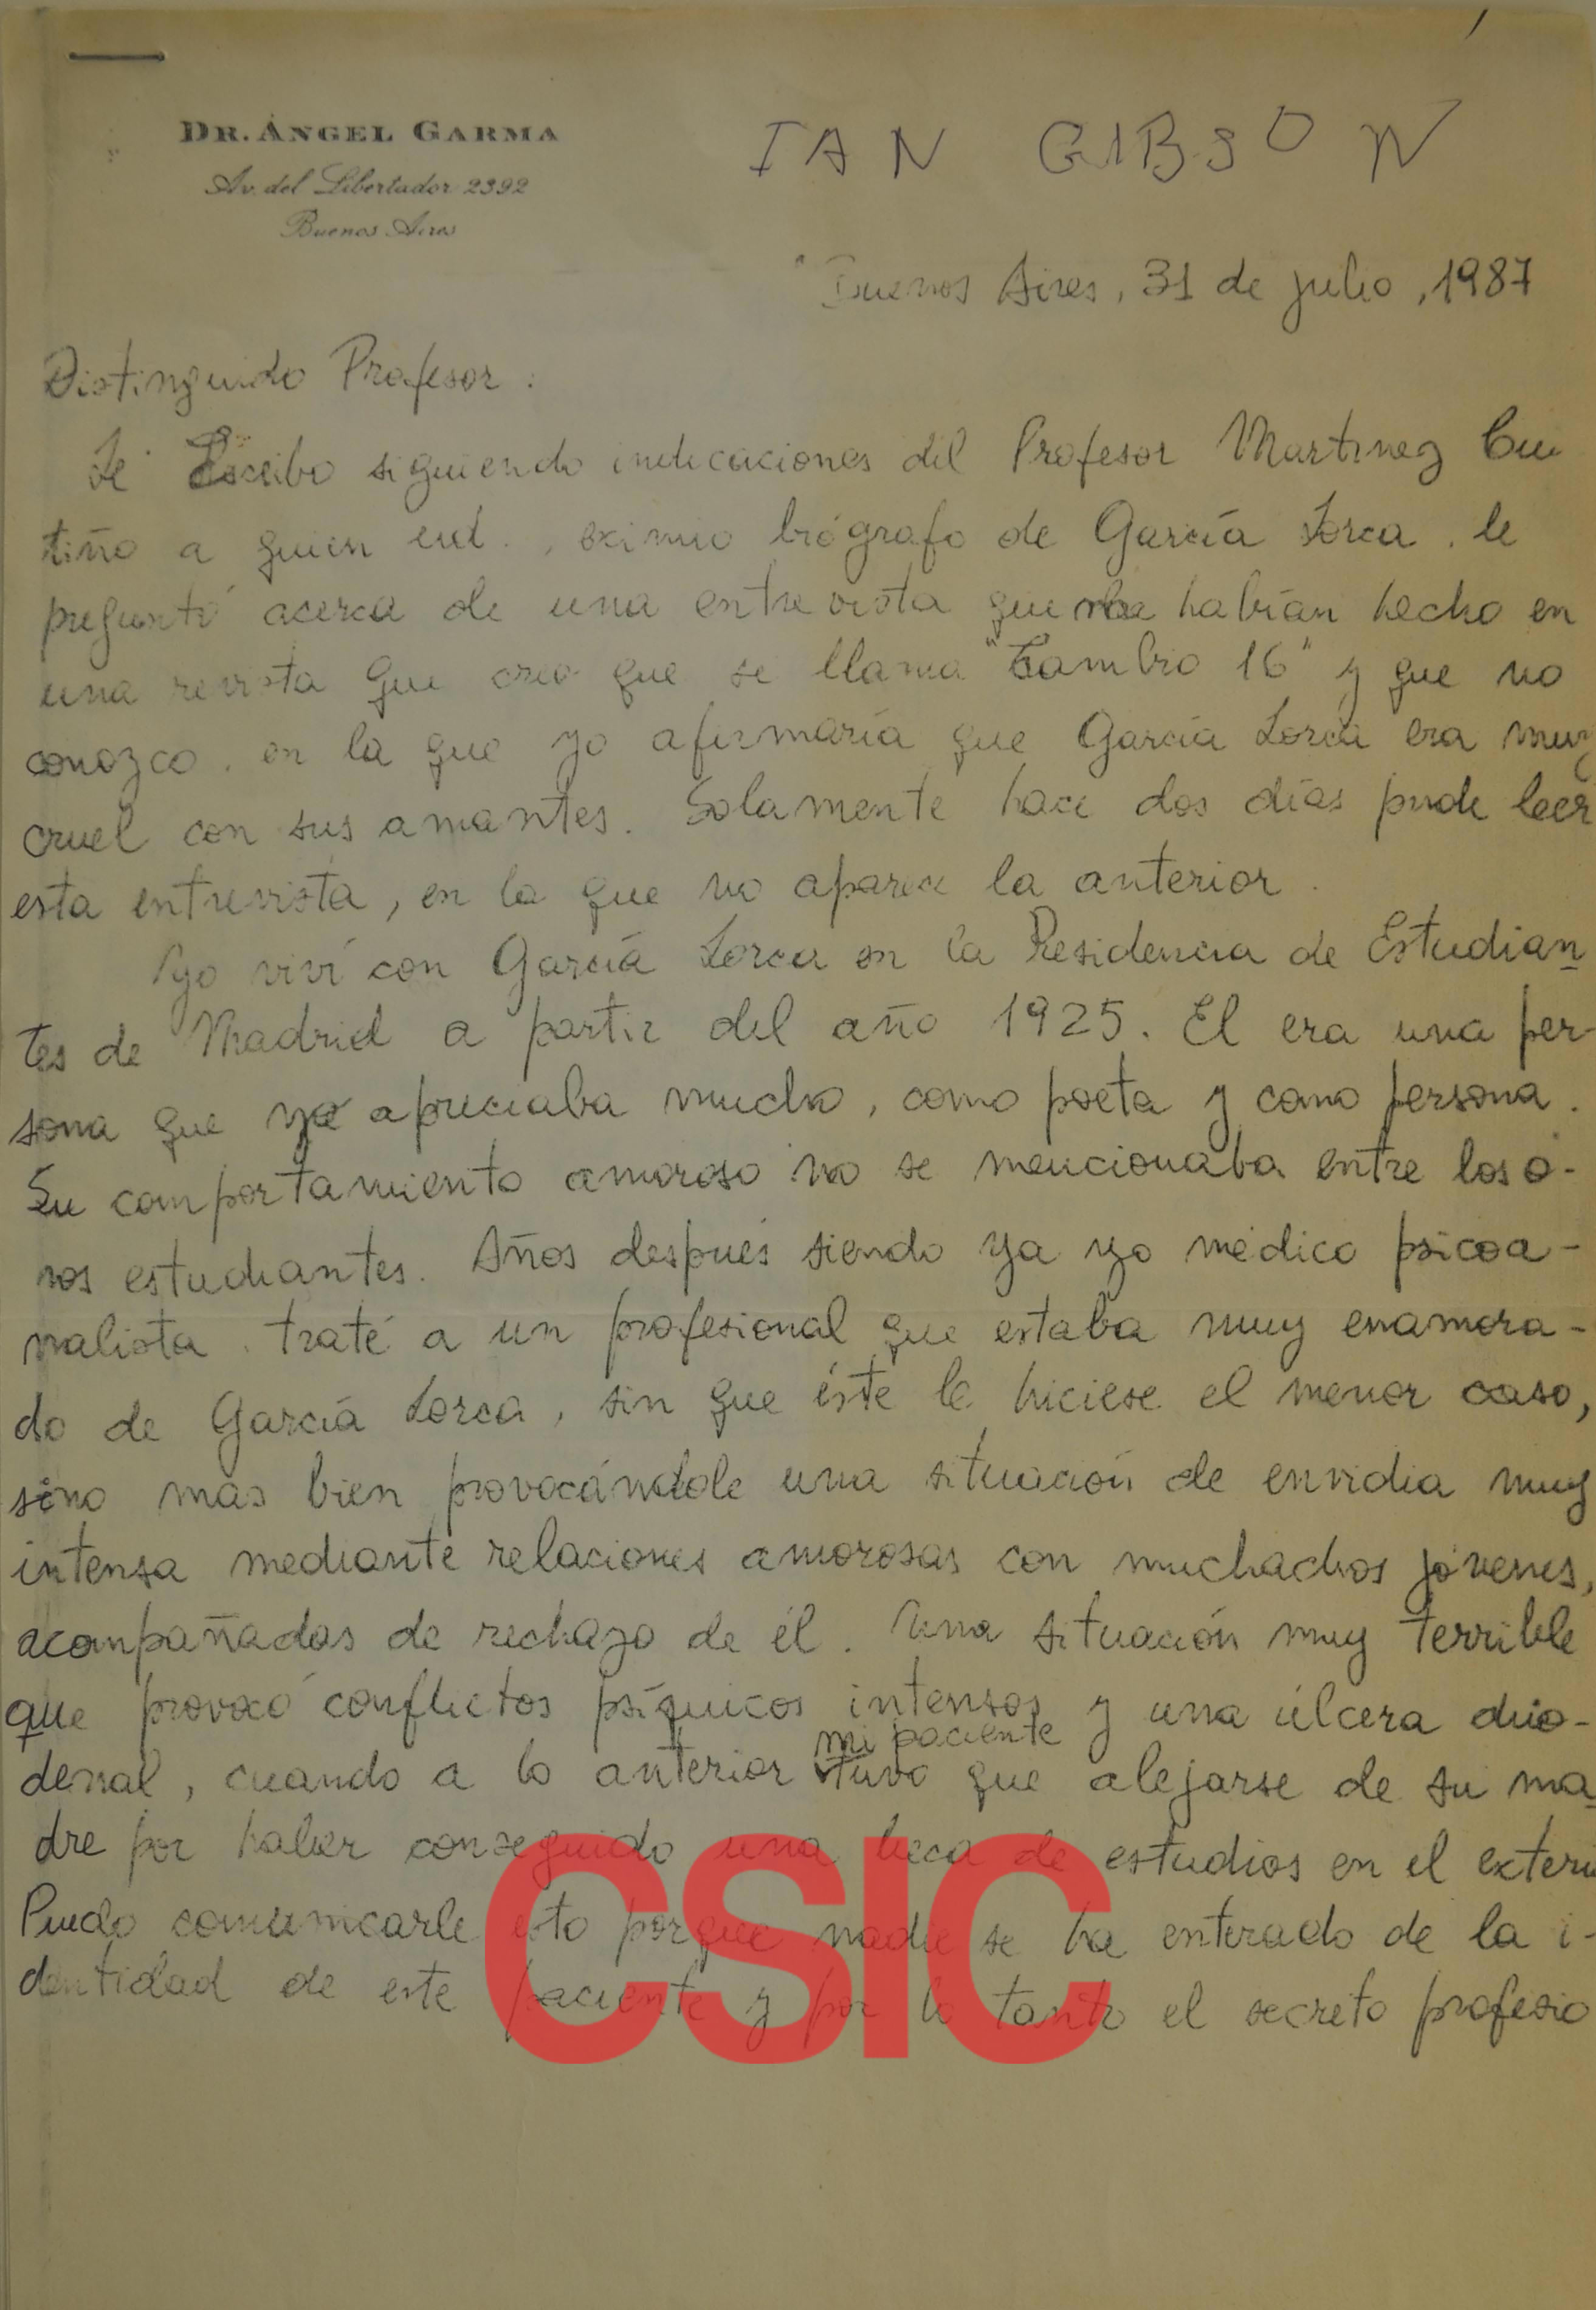 DR. ÁNGEL GARMA
Av. del Libertador 2392
Buenos Aires
IAN GIBSON
Buenos Aires, 31 de julio, 1987
Distinguido Profesor :
Le Escribo siguiendo indicaciones del Profesor Martinez Cui
tiño a quien ud., eximio biógrafo de García Lorca, le
preguntó acerca de una entrevista que me habían hecho en
una revista que creo que se llama "Cambio 16" y que no
conozco, en la que yo afirmaría que García Lorca era muy
cruel con sus amantes. Solamente hace dos días pude leer
esta entrevista, en la que no aparece la anterior.
Yo viví con García Lorca en la Residencia de Estudian
tes de Madrid a partir del año 1925. El era una per-
sona que yo apreciaba mucho, como poeta y como persona.
Su comportamiento amoroso no se mencionaba entre los o-
ros estudiantes. Años después siendo ya yo médico psicoa-
nalista, traté a un profesional que estaba muy enamora-
do de García Lorca, sin que éste le hiciese el menor caso,
sino mas bien provocándole una situación de envidia muy
intensa mediante relaciones amorosas con muchachos jóvenes,
acompañadas de rechazo de él. Una situación muy terrible
que provocó conflictos psíquicos intensos y una úlcera duo-
mi paciente
denal, cuando a lo anterior tuvo que alejarse de su ma
dre por haber conseguido una beca de estudios en el exteri
Puedo comunicarle esto porque nadie se ha enterado de la i-
dentidad de este paciente y por lo tanto el secreto profesio
CSIC